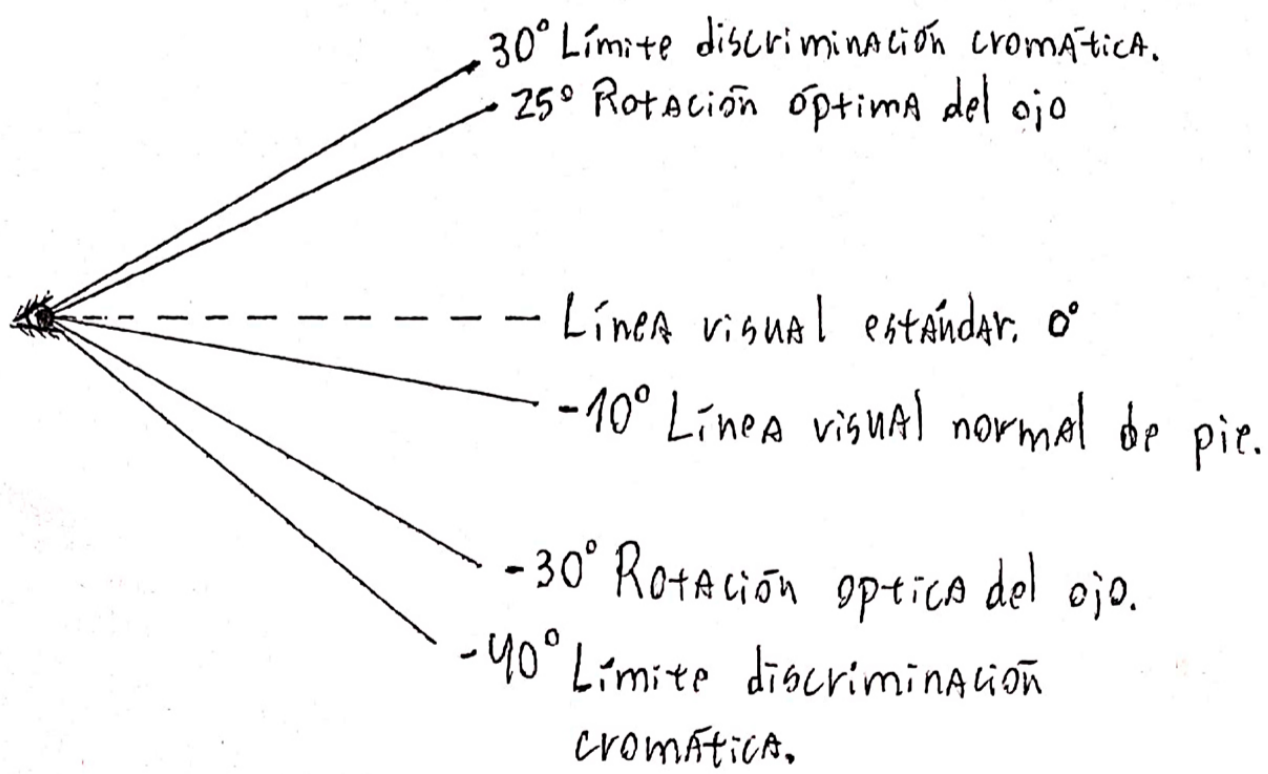 30° Límite discriminación cromática.
25° Rotación óptima del ojo
Línea visual estándar. 0°
-10° Línea visual normal de pie.
-30° Rotación optica del ojo.
-40° Límite discriminación
cromática.